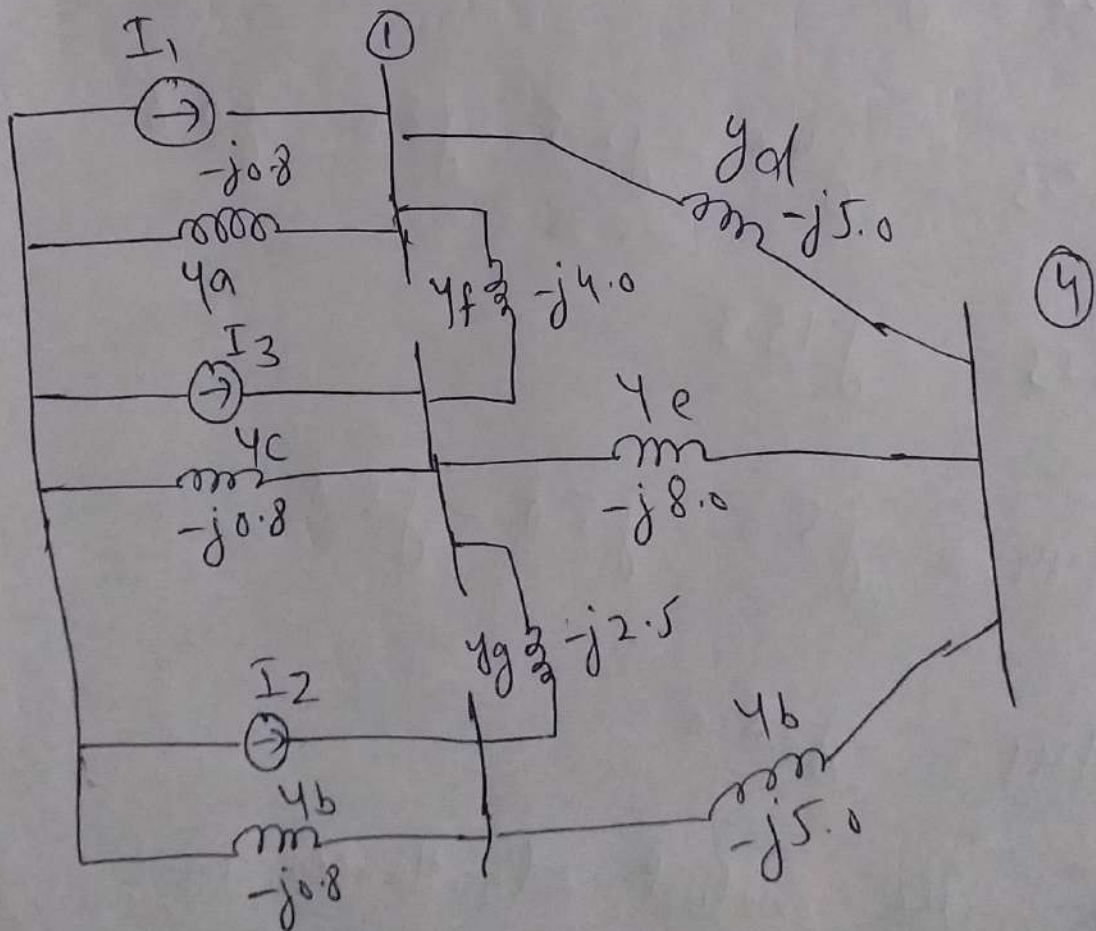 I1
①
-j0.8
ya
yd
-j5.0
④
yf -j4.0
I3
yc
-j0.8
ye
-j8.0
yg -j2.5
I2
yb
-j0.8
yb
-j5.0